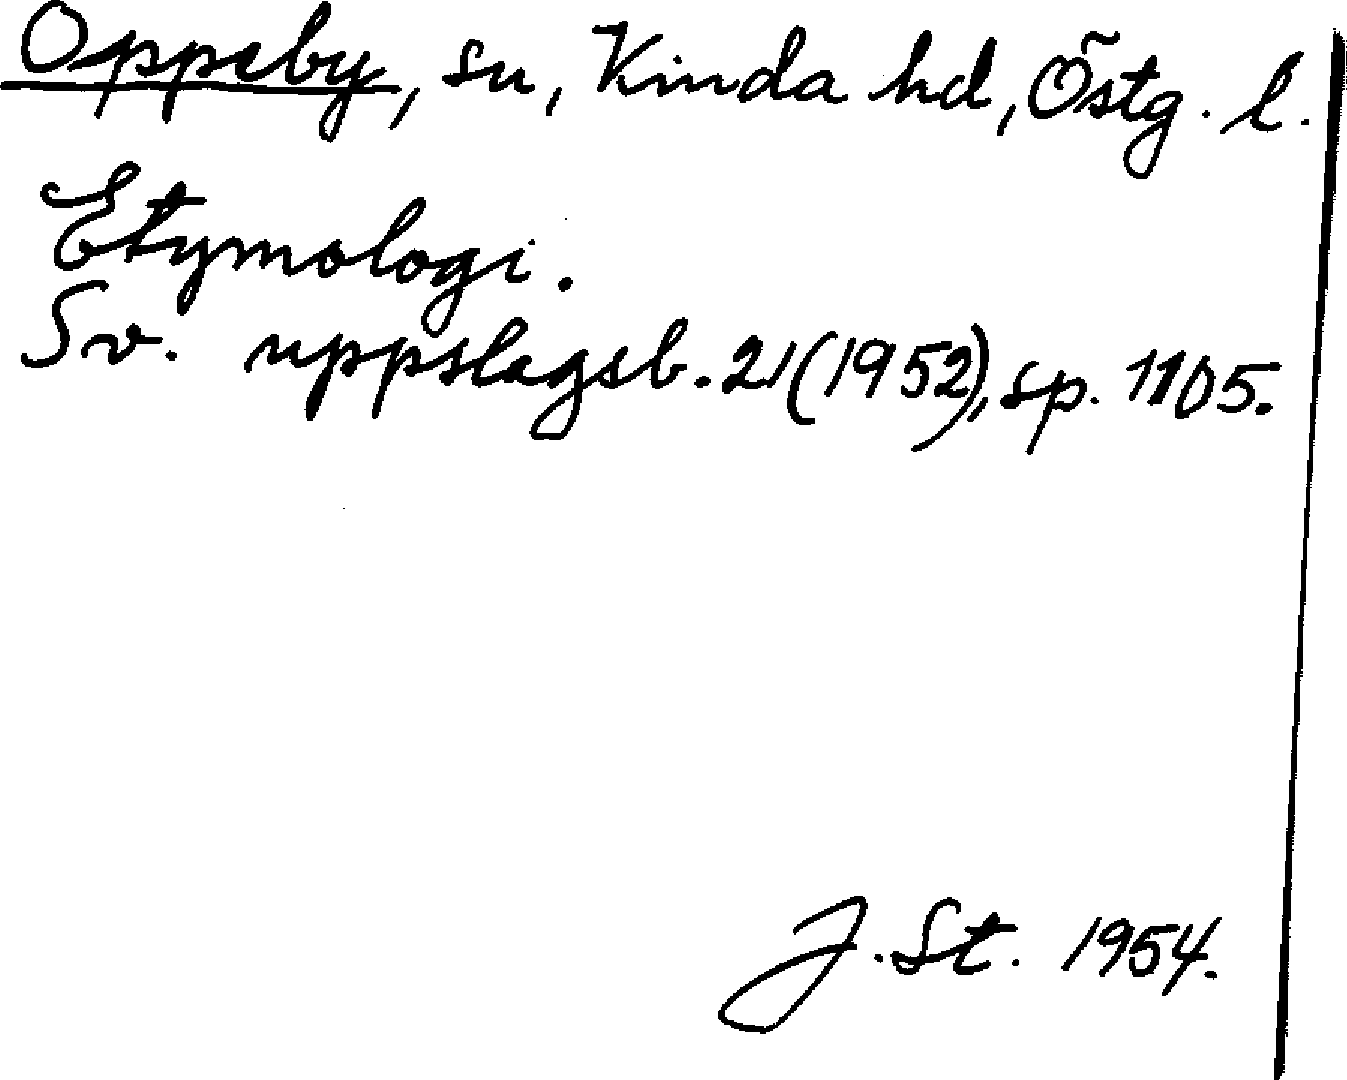 Oppeby, sn, Kinda hd, Östg. l.
Etymologi.
Sv. uppslagsb. 21 (1952), sp. 1105.
J. St. 1954.